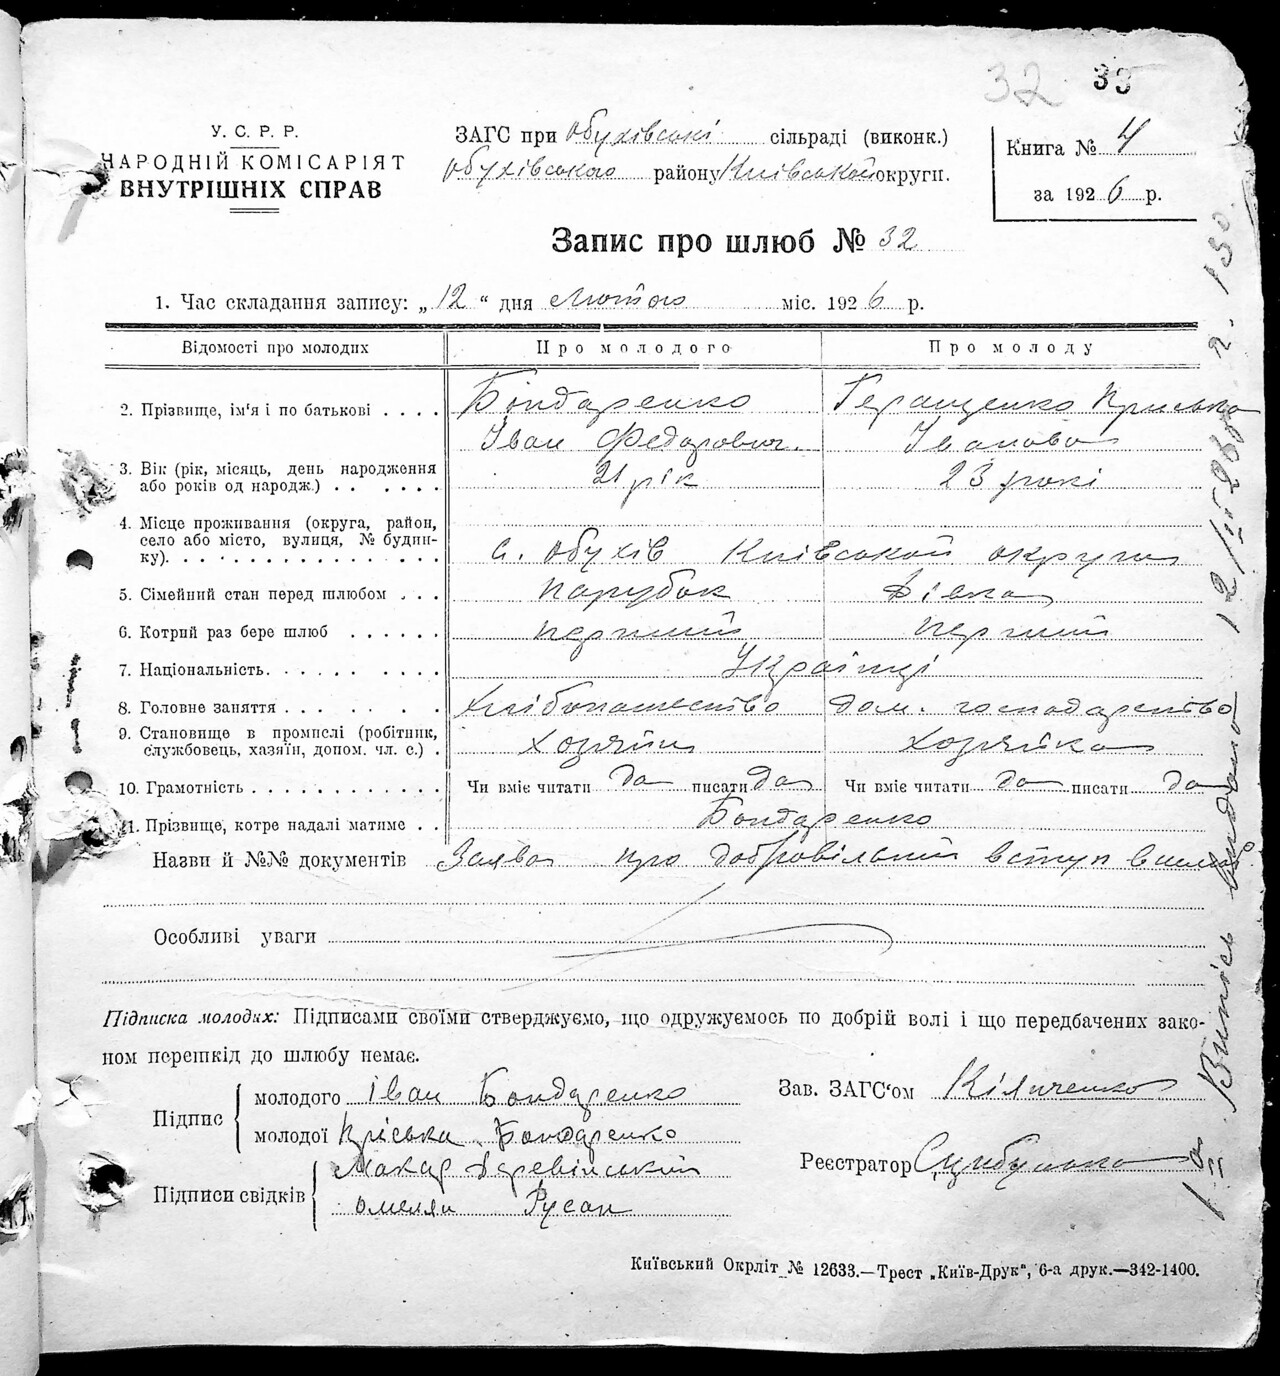 32 33
У. С. Р. Р.
НАРОДНІЙ КОМІСАРІЯТ
ВНУТРІШНІХ СПРАВ
ЗАГС при Обухівські сільраді (виконк.)
Обухівського району Київської округи.
Книга № 4
за 1926 р.
Запис про шлюб № 32
1. Час складання запису: „12“ дня Лютого міс. 1926 р.
Відомості про молодих Про молодого Про молоду
2. Прізвище, ім'я і по батькові . . . . Бондаренко Геращенко Пріська
Іван Федорович. Іванова
3. Вік (рік, місяць, день народження
або років од народж.) . . . . . . 21 рік 23 рокі
4. Місце проживання (округа, район,
село або місто, вулиця, № будин-
ку). . . . . . . . . . . . . . . с. Обухів Київської округи
5. Сімейний стан перед шлюбом . . . парубок дівка
6. Котрий раз бере шлюб . . . . . . перший перший
7. Національність. . . . . . . . . . Українці
8. Головне заняття . . . . . . . . Хлібопашество дом. господарство
9. Становище в промислі (робітник,
службовець, хазяїн, допом. чл. с.) . хозяїн хозяйка
10. Грамотність . . . . . . . . . . . Чи вміє читати да писати да Чи вміє читати да писати да
11. Прізвище, котре надалі матиме . . Бондаренко
Назви й №№ документів Заява про добровільний вступ в шлюб
Особливі уваги
Підписка молодих: Підписами своїми стверджуємо, що одружуємось по добрій волі і що передбачених зако-
ном перешкід до шлюбу немає.
Підпис
молодого Іван Бондаренко
молодої Пріська Бондаренко
Зав. ЗАГС'ом Кіяченко
Підписи свідків
Макар Деревінський
Омелян Русан
Реєстратор
Випісь видано 12/II 26
Київський Окрліт № 12633.—Трест „Київ-Друк“, 6-а друк.—342-1400.